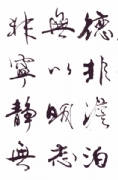 德非澹泊
無以明志
非寧靜無